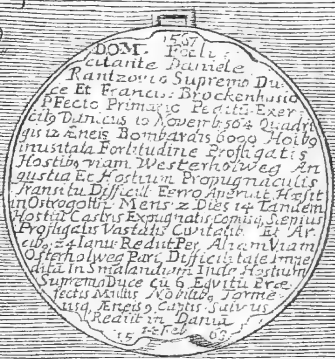 1567
DOM. Foeli
citante Daniele
Rantzovio Supremo Du
ce Et Francisc: Brockenhusio
PFecto Primario Peditū Exer
citō Danicus 10 Novemb 564 Quadri
gis 12 Æneis Bombardis 6000 Hoibō
inusitata Fortitudine Profligatis
Hostibō viam Westerholweg An
gustia Et Hostium Propugnaculis
Transitu Difficil Ferro Aperuit Hæsit
in Ostrogothia Mens: 2 Dies 4 Tandem
Hostiū Castris Expugnatis Comisq Sepius
Profligatis Vastatis Et Ar
cibō 24 Ianu: Redut Per Aliam Viam
Osterholweg Pari Difficultate Impe
dita In Smalandum Inde Hostium
Supremo Duce cū 6 Eqvitū Præ
fectis Multis Nobilibō Torme
Æneis 9 Captis Salvus
Redut in Dania
14 Feb
15 63